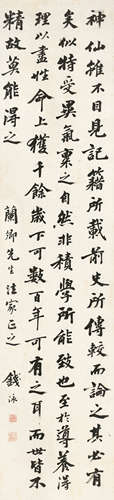 神仙雖不目見記籍所載前史所傳較而論之其必有
矣似特受異氣稟之自然非積學所能致也至於導養得
理以盡性命上獲千餘歲下可數百年可有之耳而世皆不
精故莫能得之
蘭卿先生法家正之 錢泳